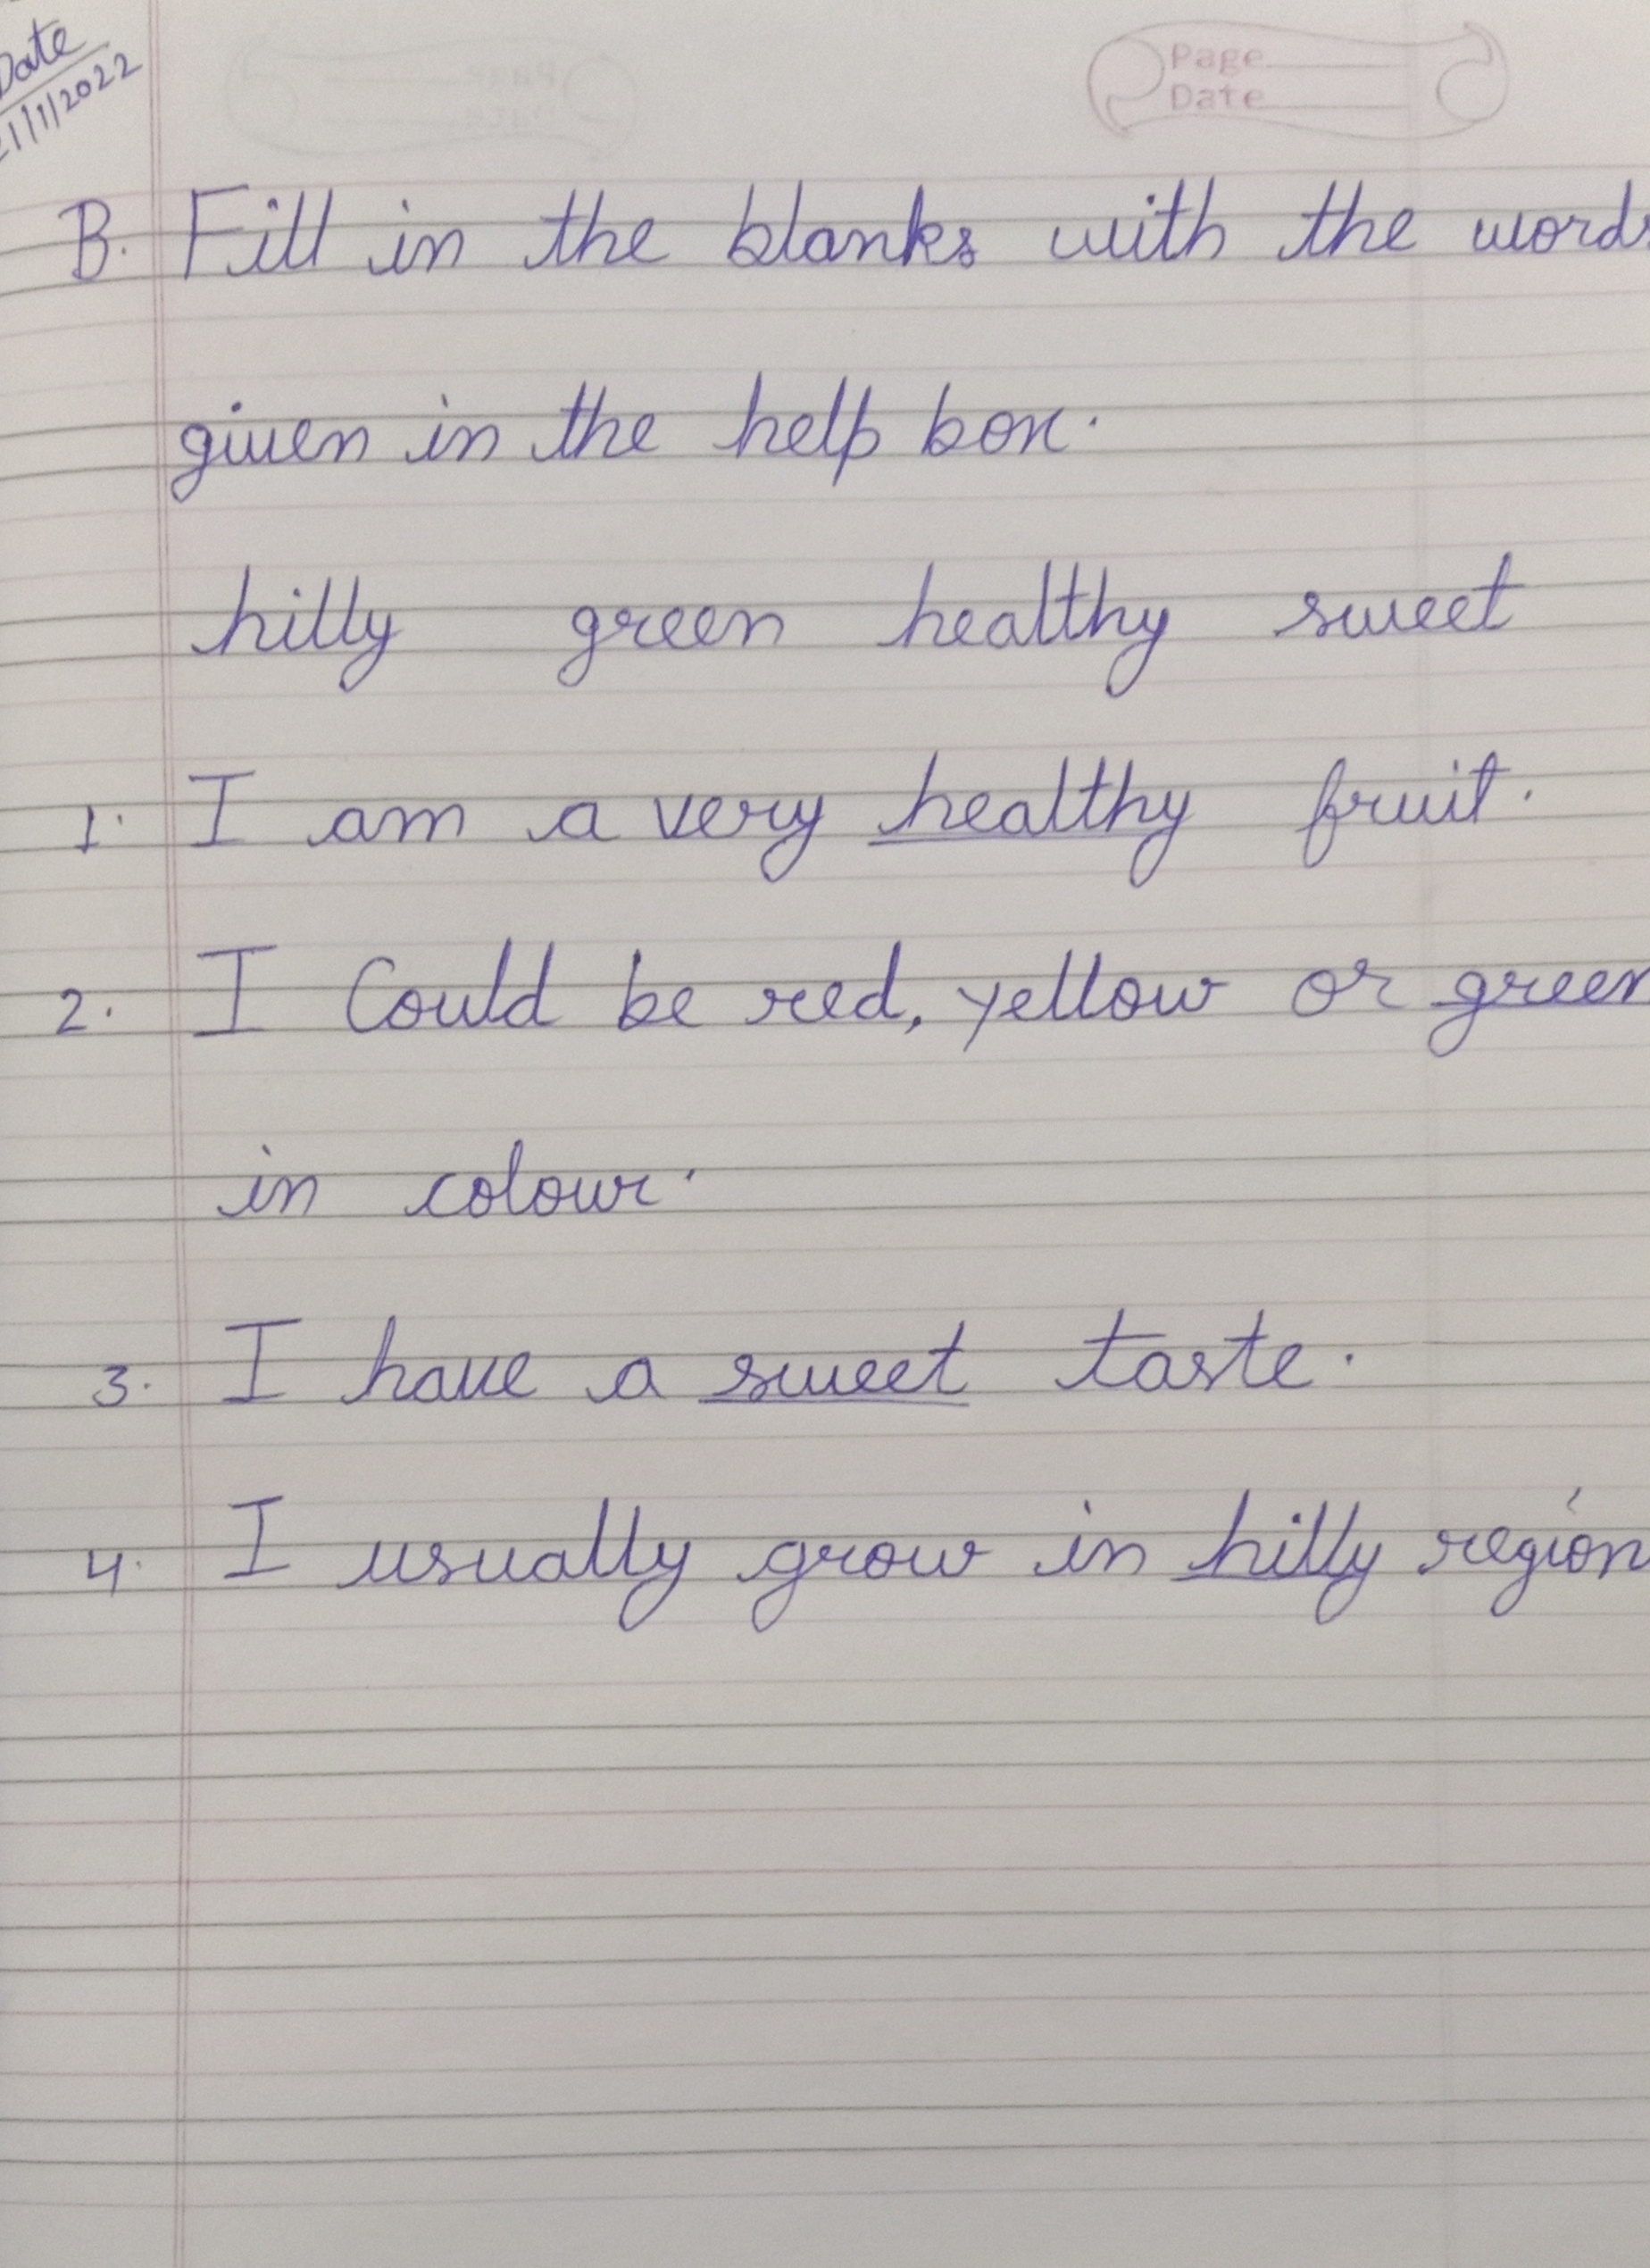 Date
Page
Date
B. Fill in the blanks with the words
given in the help box.
hilly green healthy sweet
1. I am a very healthy fruit.
2. I Could be red, yellow or green
in colour.
3. I have a sweet taste.
4. I usually grow in hilly region